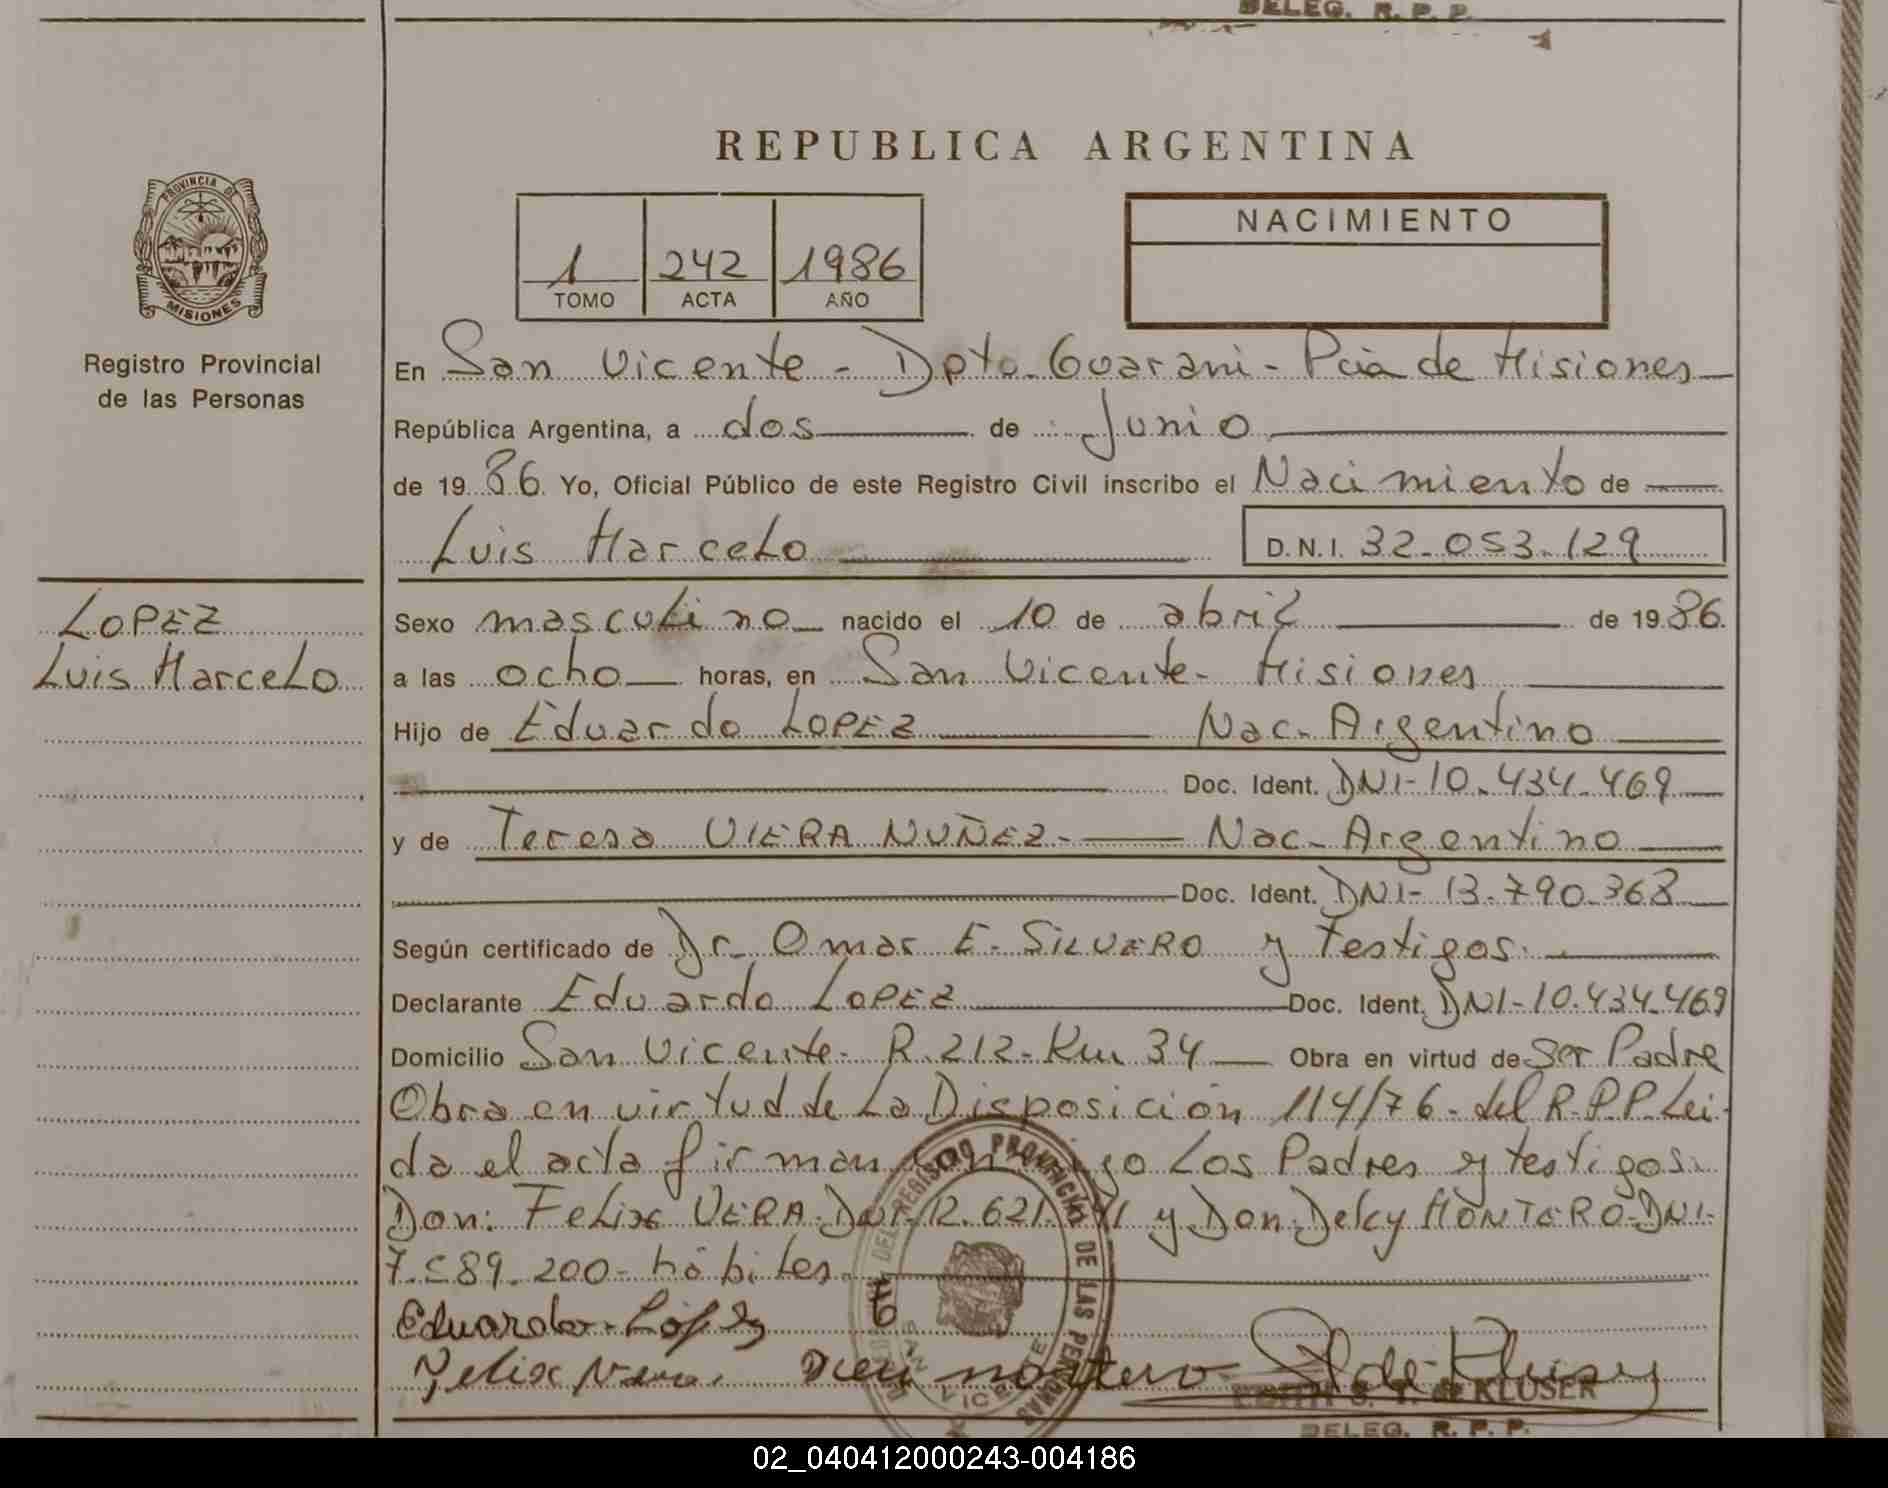 DELEG. R. P. P.
REPUBLICA ARGENTINA
PROVINCIA DE
MISIONES
Registro Provincial
de las Personas
1 242 1986
TOMO ACTA AÑO
NACIMIENTO
En San Vicente - Dpto. Guarani - Pcia de Misiones
República Argentina, a dos de Junio
de 1986. Yo, Oficial Público de este Registro Civil inscribo el Nacimiento de
Luis Marcelo D.N.I. 32.053.129
LOPEZ
Luis Marcelo
Sexo masculino nacido el 10 de abril de 1986.
a las ocho horas, en San Vicente - Misiones
Hijo de Eduardo LOPEZ Nac. Argentino
Doc. Ident. DNI-10.434.469
y de Teresa VIERA NUÑEZ - Nac. Argentino
Doc. Ident. DNI-13.790.368
Según certificado de Dr. Omar E. SILVERO y Testigos.
Declarante Eduardo LOPEZ Doc. Ident. DNI-10.434.469
Domicilio San Vicente - R. 212 - Km 34 Obra en virtud de Ser Padre
Obra en virtud de La Disposición 114/76 - del R.P.P. Lei-
da el acta firman Los Padres y testigos.
Don: Felix VERA DNI-12.621. y Don: Delcy MONTERO-DNI-
7. 89.200 - hábiles.
REGISTRO PROVINCIAL DE LAS PERSONAS
SAN VICENTE
Eduardo López
Felix Montero
KLUSER
DELEG. R. P. P.
02_040412000243-004186